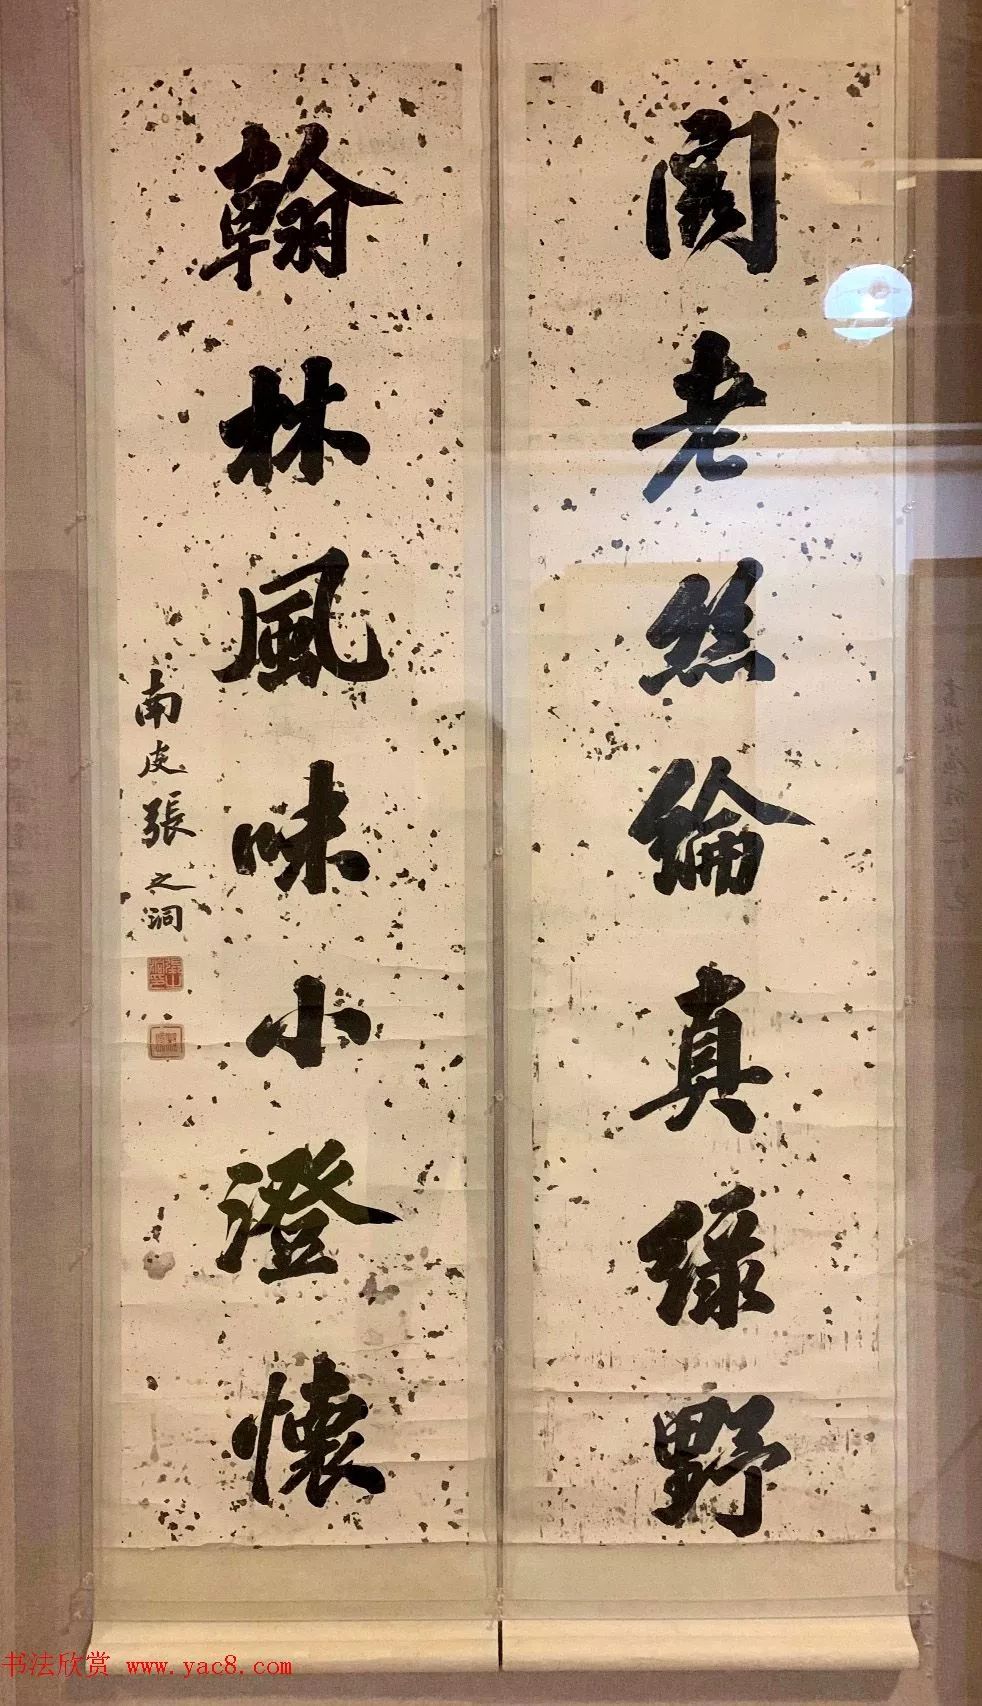 阁老絲綸真綠野
翰林風味小澄懷
南皮張之洞
书法欣赏 www.yac8.com